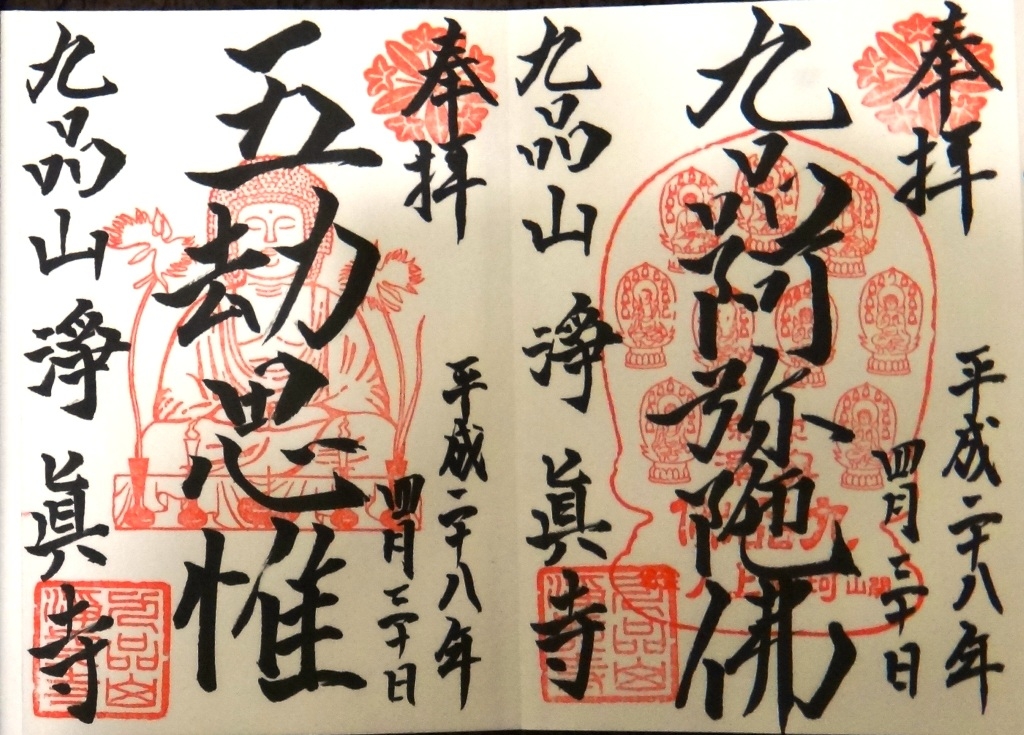 奉拝
平成二十八年
四月三十日
九品阿弥陀佛
九品山
開山珂
上人
九品山 淨眞寺
奉拝
平成二十八年
四月三十日
五劫思惟
九品山 淨眞寺